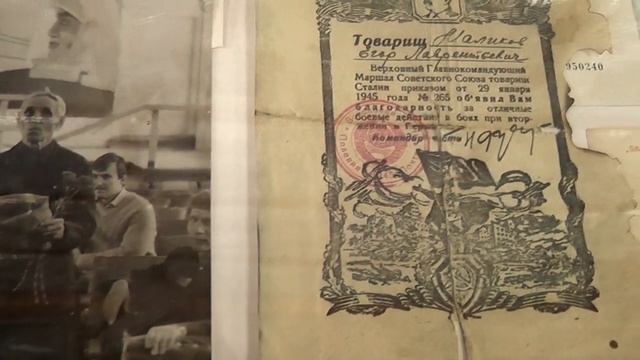 Товарищ Маликов
Егор Лаврентьевич
Верховный Главнокомандующий
Маршал Советского Союза товарищ
Сталин приказом от 29 января
1945 года № 265 объявил Вам
благодарность за отличные
боевые действия в боях при втор-
жении в Герма
Командир части
950240